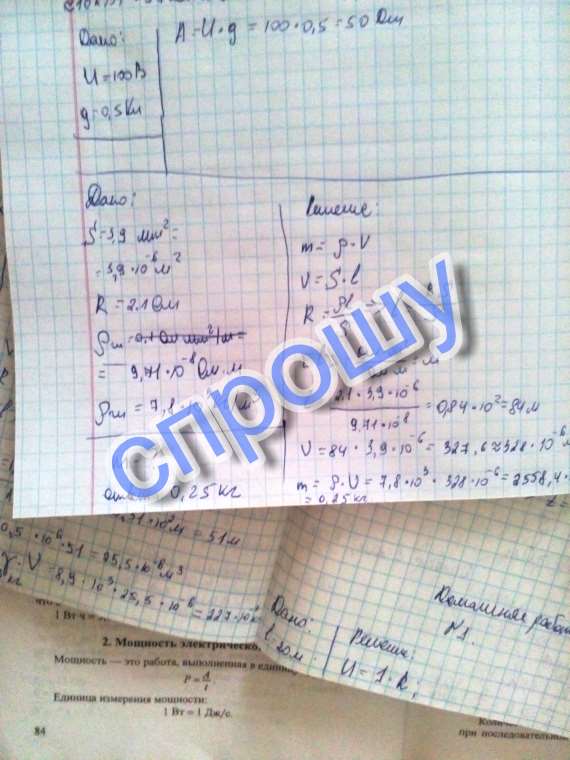 Дано:
U = 100 В
q = 0,5 Кл
A = U · q = 100 · 0,5 = 50 Дж
Дано:
S = 3,9 мм² =
= 3,9 · 10⁻⁶ м²
R = 2.1 Ом
= 9,71 · 10⁻⁸ Ом · м
= 7,8
0,25 кг
Решение:
m = ρ · V
V = S · l
R = ρl
2,1 · 3,9 · 10⁻⁶
9,71 · 10⁻⁸
= 0,84 · 10² = 84 м
V = 84 · 3,9 · 10⁻⁶ = 327,6 ≈ 328 · 10⁻⁶
m = ρ · V = 7,8 · 10³ · 328 · 10⁻⁶ = 2558,4 ·
= 0,25 кг
спрошу
= 51 м
0,5 · 10⁻⁶ · 51 = 25,5 · 10⁻⁶ м³
V = 8,9 · 10³ · 25,5 · 10⁻⁶ = 227 · 10
Домашняя работ
№1.
Дано:
Решение:
1 Вт·ч =
2. Мощность электрическо
Мощность — это работа, выполненная в единиц
P = A/t.
Единица измерения мощности:
1 Вт = 1 Дж/с.
84
Количе
при последовательно